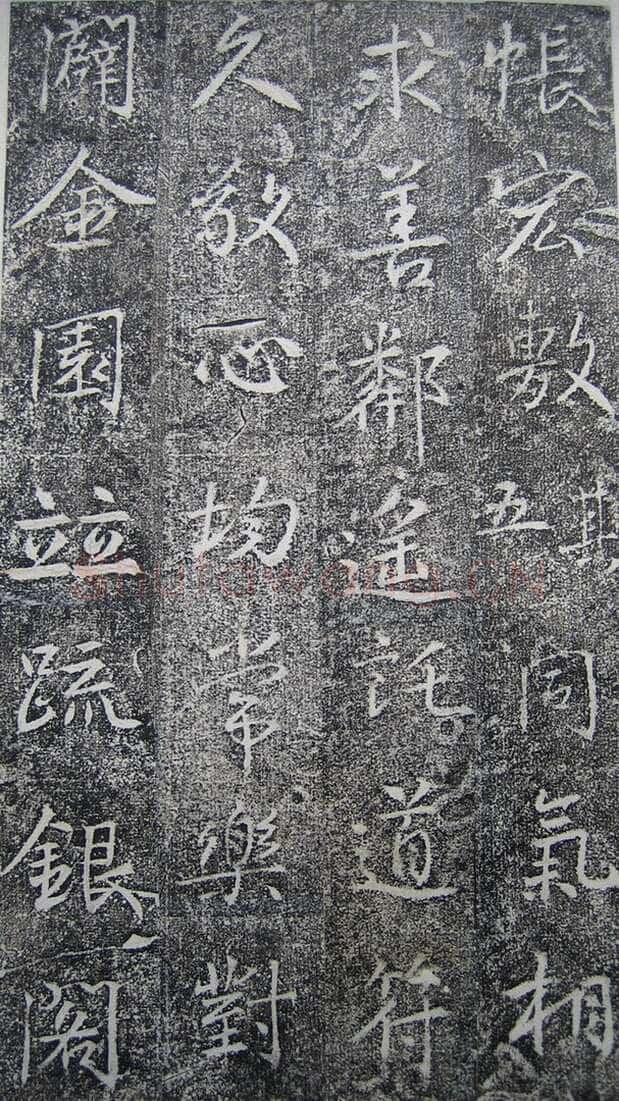 帳宏敷其五同氣相
求善鄰遙託道符
久敬心均常樂對
闢金園竝疏銀閣
shufawang.CN